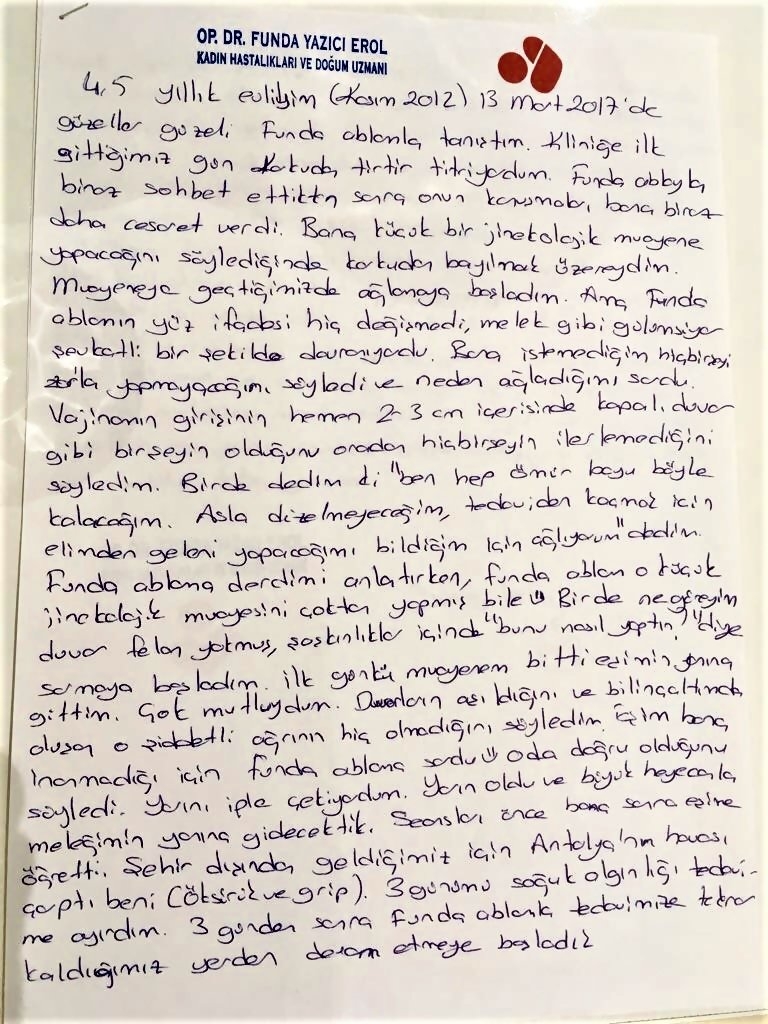 OP. DR. FUNDA YAZICI EROL
KADIN HASTALIKLARI VE DOĞUM UZMANI
4,5 yıllık evliyim (Kasım 2012) 13 Mart 2017'de
güzeller güzeli Funda ablamla tanıştım. Kliniğe ilk
gittiğimiz gün korkuda tirtir titriyordum. Funda ablayla
biraz sohbet ettikten sonra onun konuşmaları, bana biraz
daha cesaret verdi. Bana küçük bir jinekolojik muayene
yapacağını söylediğinde korkudan bayılmak üzereydim.
Muayeneye geçtiğimizde ağlamaya başladım. Ama Funda
ablamın yüz ifadesi hiç değişmedi, melek gibi gülümsüyor
şevkatli bir şekilde davranıyordu. Bana istemediğim hiçbirşeyi
zorla yapmayacağını söyledi ve neden ağladığımı sordu.
Vajinamın girişinin hemen 2-3 cm içerisinde kapalı duvar
gibi birşeyin olduğunu oradan hiçbirşeyin ilerlemediğini
söyledim. Birde dedim ki "ben hep ömür boyu böyle
kalacağım. Asla düzelmeyeceğim, tedaviden kaçmak için
elimden geleni yapacağımı bildiğim için ağlıyorum" dedim.
Funda ablama derdimi anlatırken, funda ablam o küçük
jinekolojik muayesini çoktan yapmış bile Birde ne göreyim
duvar felan yokmuş, şaşkınlıklar içinde "bunu nasıl yaptın?" diye
sormaya başladım. İlk günkü muayenem bitti eşimin yanına
gittim. Çok mutluydum. Duvarların aşıldığını ve bilinçaltımda
oluşan o şiddetli ağrının hiç olmadığını söyledim. Eşim bana
inanmadığı için funda ablama sordu oda doğru olduğunu
söyledi. Yarını iple çekiyordum. Yarın oldu ve büyük heyecanla
meleğimin yanına gidecektik. Seansları önce bana sonra eşime
öğretti. Şehir dışından geldiğimiz için Antalya'nın havası
çarptı beni (Öksürük ve grip). 3 günümü soğuk algınlığı tedavi-
me ayırdım. 3 günden sonra Funda ablamla tedavimize tekrar
kaldığımız yerden devam etmeye başladık